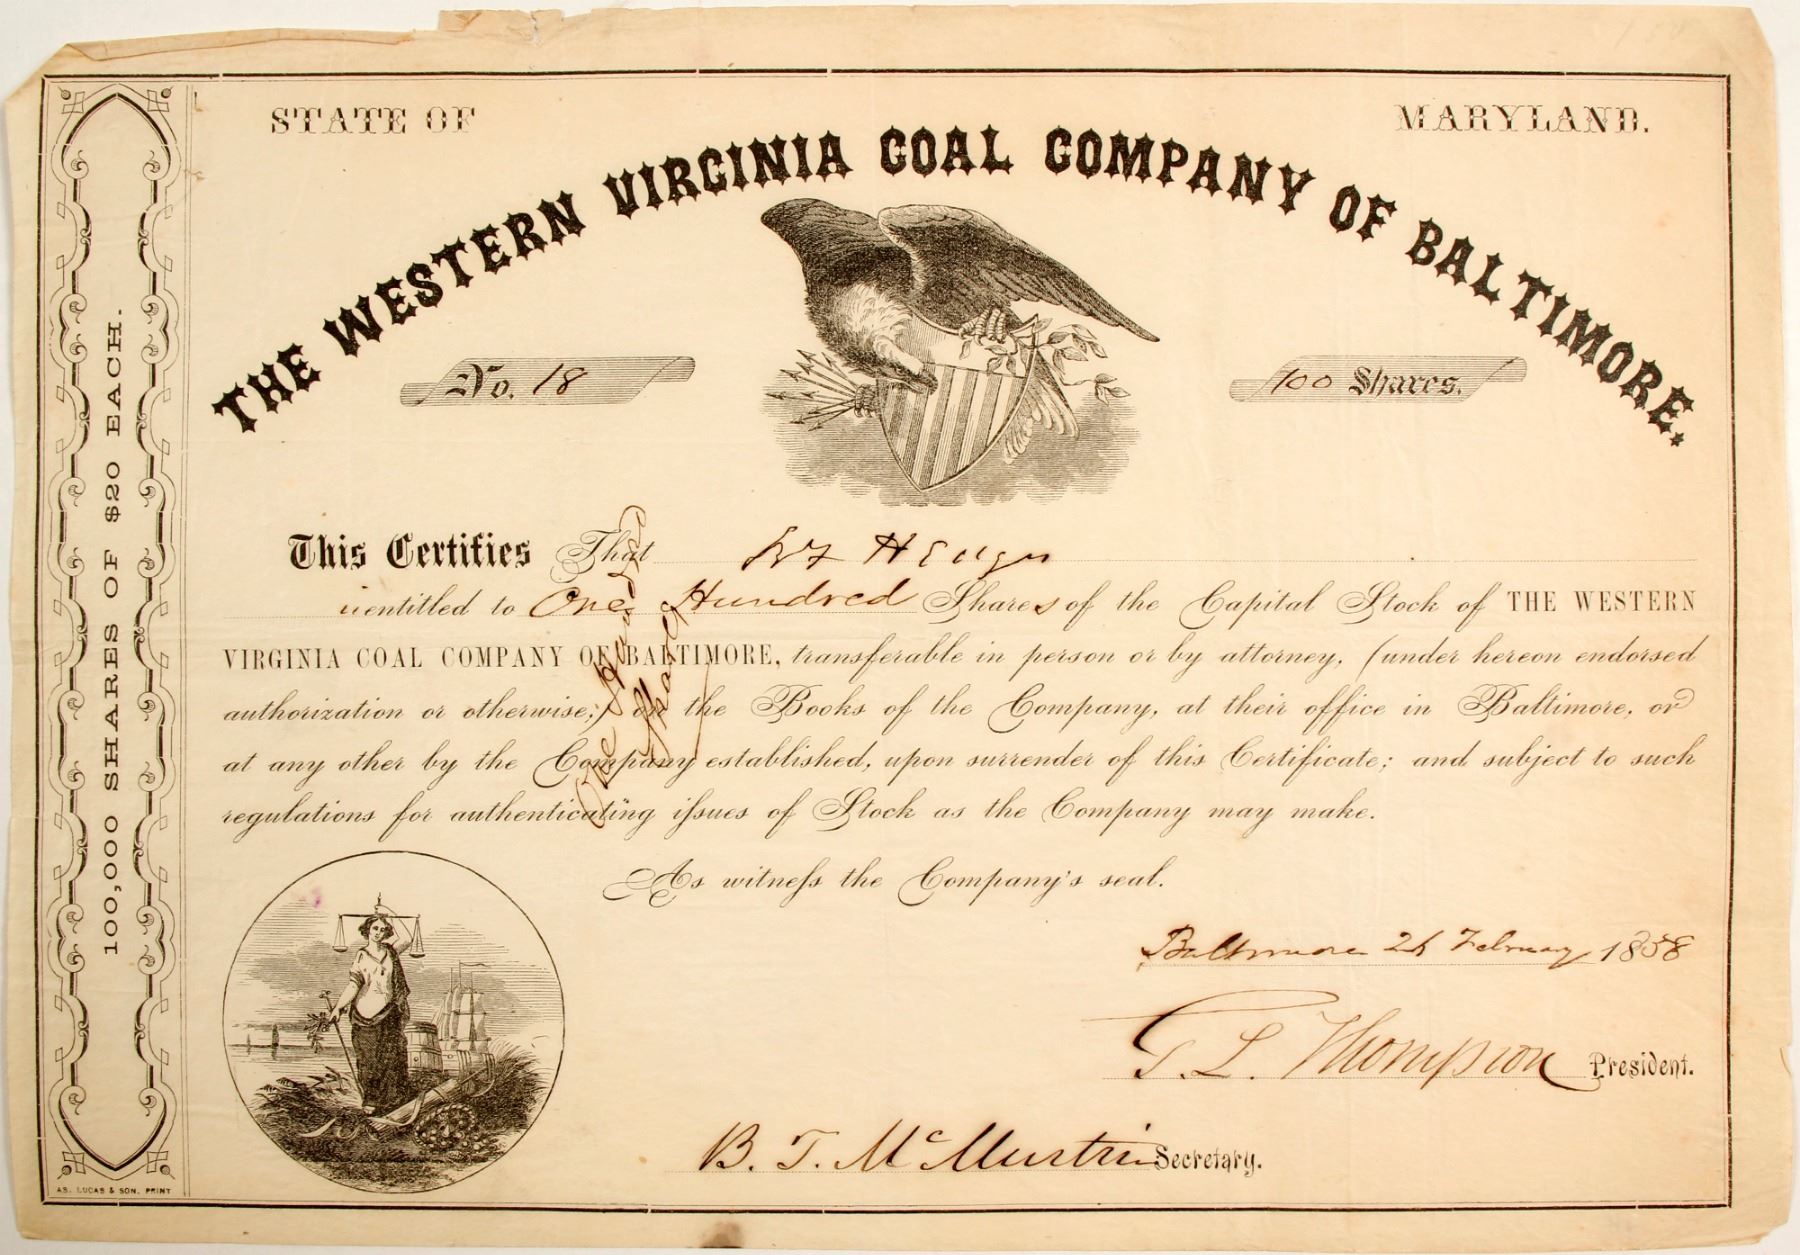 STATE OF
MARYLAND.
THE WESTERN VIRGINIA COAL COMPANY OF BALTIMORE.
No. 18
100 Shares.
100,000 SHARES OF $20 EACH.
This Certifies That
is entitled to One Hundred Shares of the Capital Stock of THE WESTERN
VIRGINIA COAL COMPANY OF BALTIMORE, transferable in person or by attorney, (under hereon endorsed
authorization or otherwise;) on the Books of the Company, at their office in Baltimore, or
at any other by the Company established, upon surrender of this Certificate; and subject to such
regulations for authenticating issues of Stock as the Company may make.
One Hundred
Shares
As witness the Company's seal.
Baltimore February 1858
L. Thompson President.
B. T. McMurtrie Secretary.
AS. LUCAS & SON. PRINT